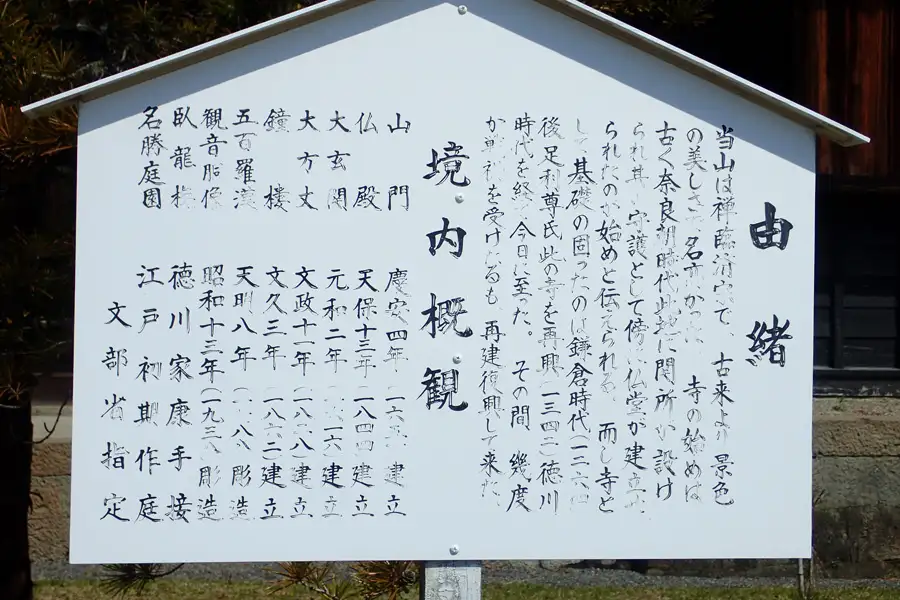 由緒
当山は禅臨済宗で、古来より景色
の美しさで名高かった、寺の始めは
古く奈良朝時代此地に関所が設け
られ其の守護として傍に仏堂が建
られたのが始めと伝えられる。而し寺と
して基礎の固ったのは鎌倉時代
後足利尊氏此の寺を再興(一三四二)徳川
時代を経今日に至った。その間幾度
か を受けしるも再建復興して来た
境内概観
山門 慶安四年 建立
仏殿 天保十三年(一八四四)建立
大玄関 元和二年 建立
大方丈 文政十一年(一八二八)建立
鐘楼 文久三年(一八六二)建立
五百羅漢 天明八年 彫造
観音胎像 昭和十三年 彫造
臥龍梅 徳川家康手接
名勝庭園 江戸初期作庭
文部省指定